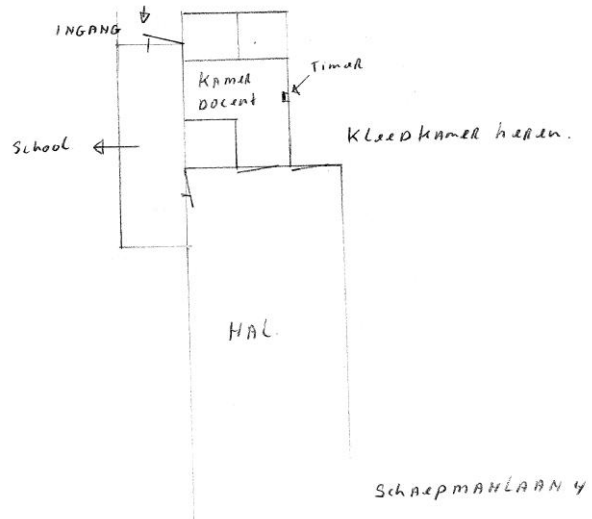 INGANG
TIMER
KAMER
DOCENT
KLEEDKAMER HEREN.
School
HAL.
SCHAEPMANLAAN 4